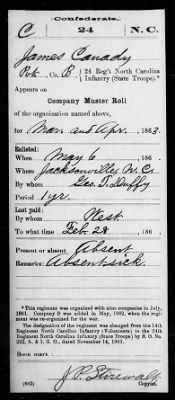 Confederate.
C 24 N.C.
James Canady
Pvt., Co. B, 24 Reg't North Carolina
Infantry (State Troops).*
Appears on
Company Muster Roll
of the organization named above,
for Mar. and Apr., 1863.
Enlisted:
When May 6, 186
Where Jacksonville, N. Co.
By whom Geo. T. Duffy
Period 1 yr.
Last paid:
By whom West
To what time Feb 28, 186
Present or absent Absent
Remarks: Absent sick
*This regiment was organized with nine companies in July,
1861. Company D was added in May, 1862, when the regi-
ment was re-organized for the war.
The designation of the regiment was changed from the 14th
Regiment North Carolina Infantry (Volunteers), to the 24th
Regiment North Carolina Infantry (State Troops) by S. O. No.
222, A. & I. G. O., dated November 14, 1861.
Book mark:
(642) Copyist.